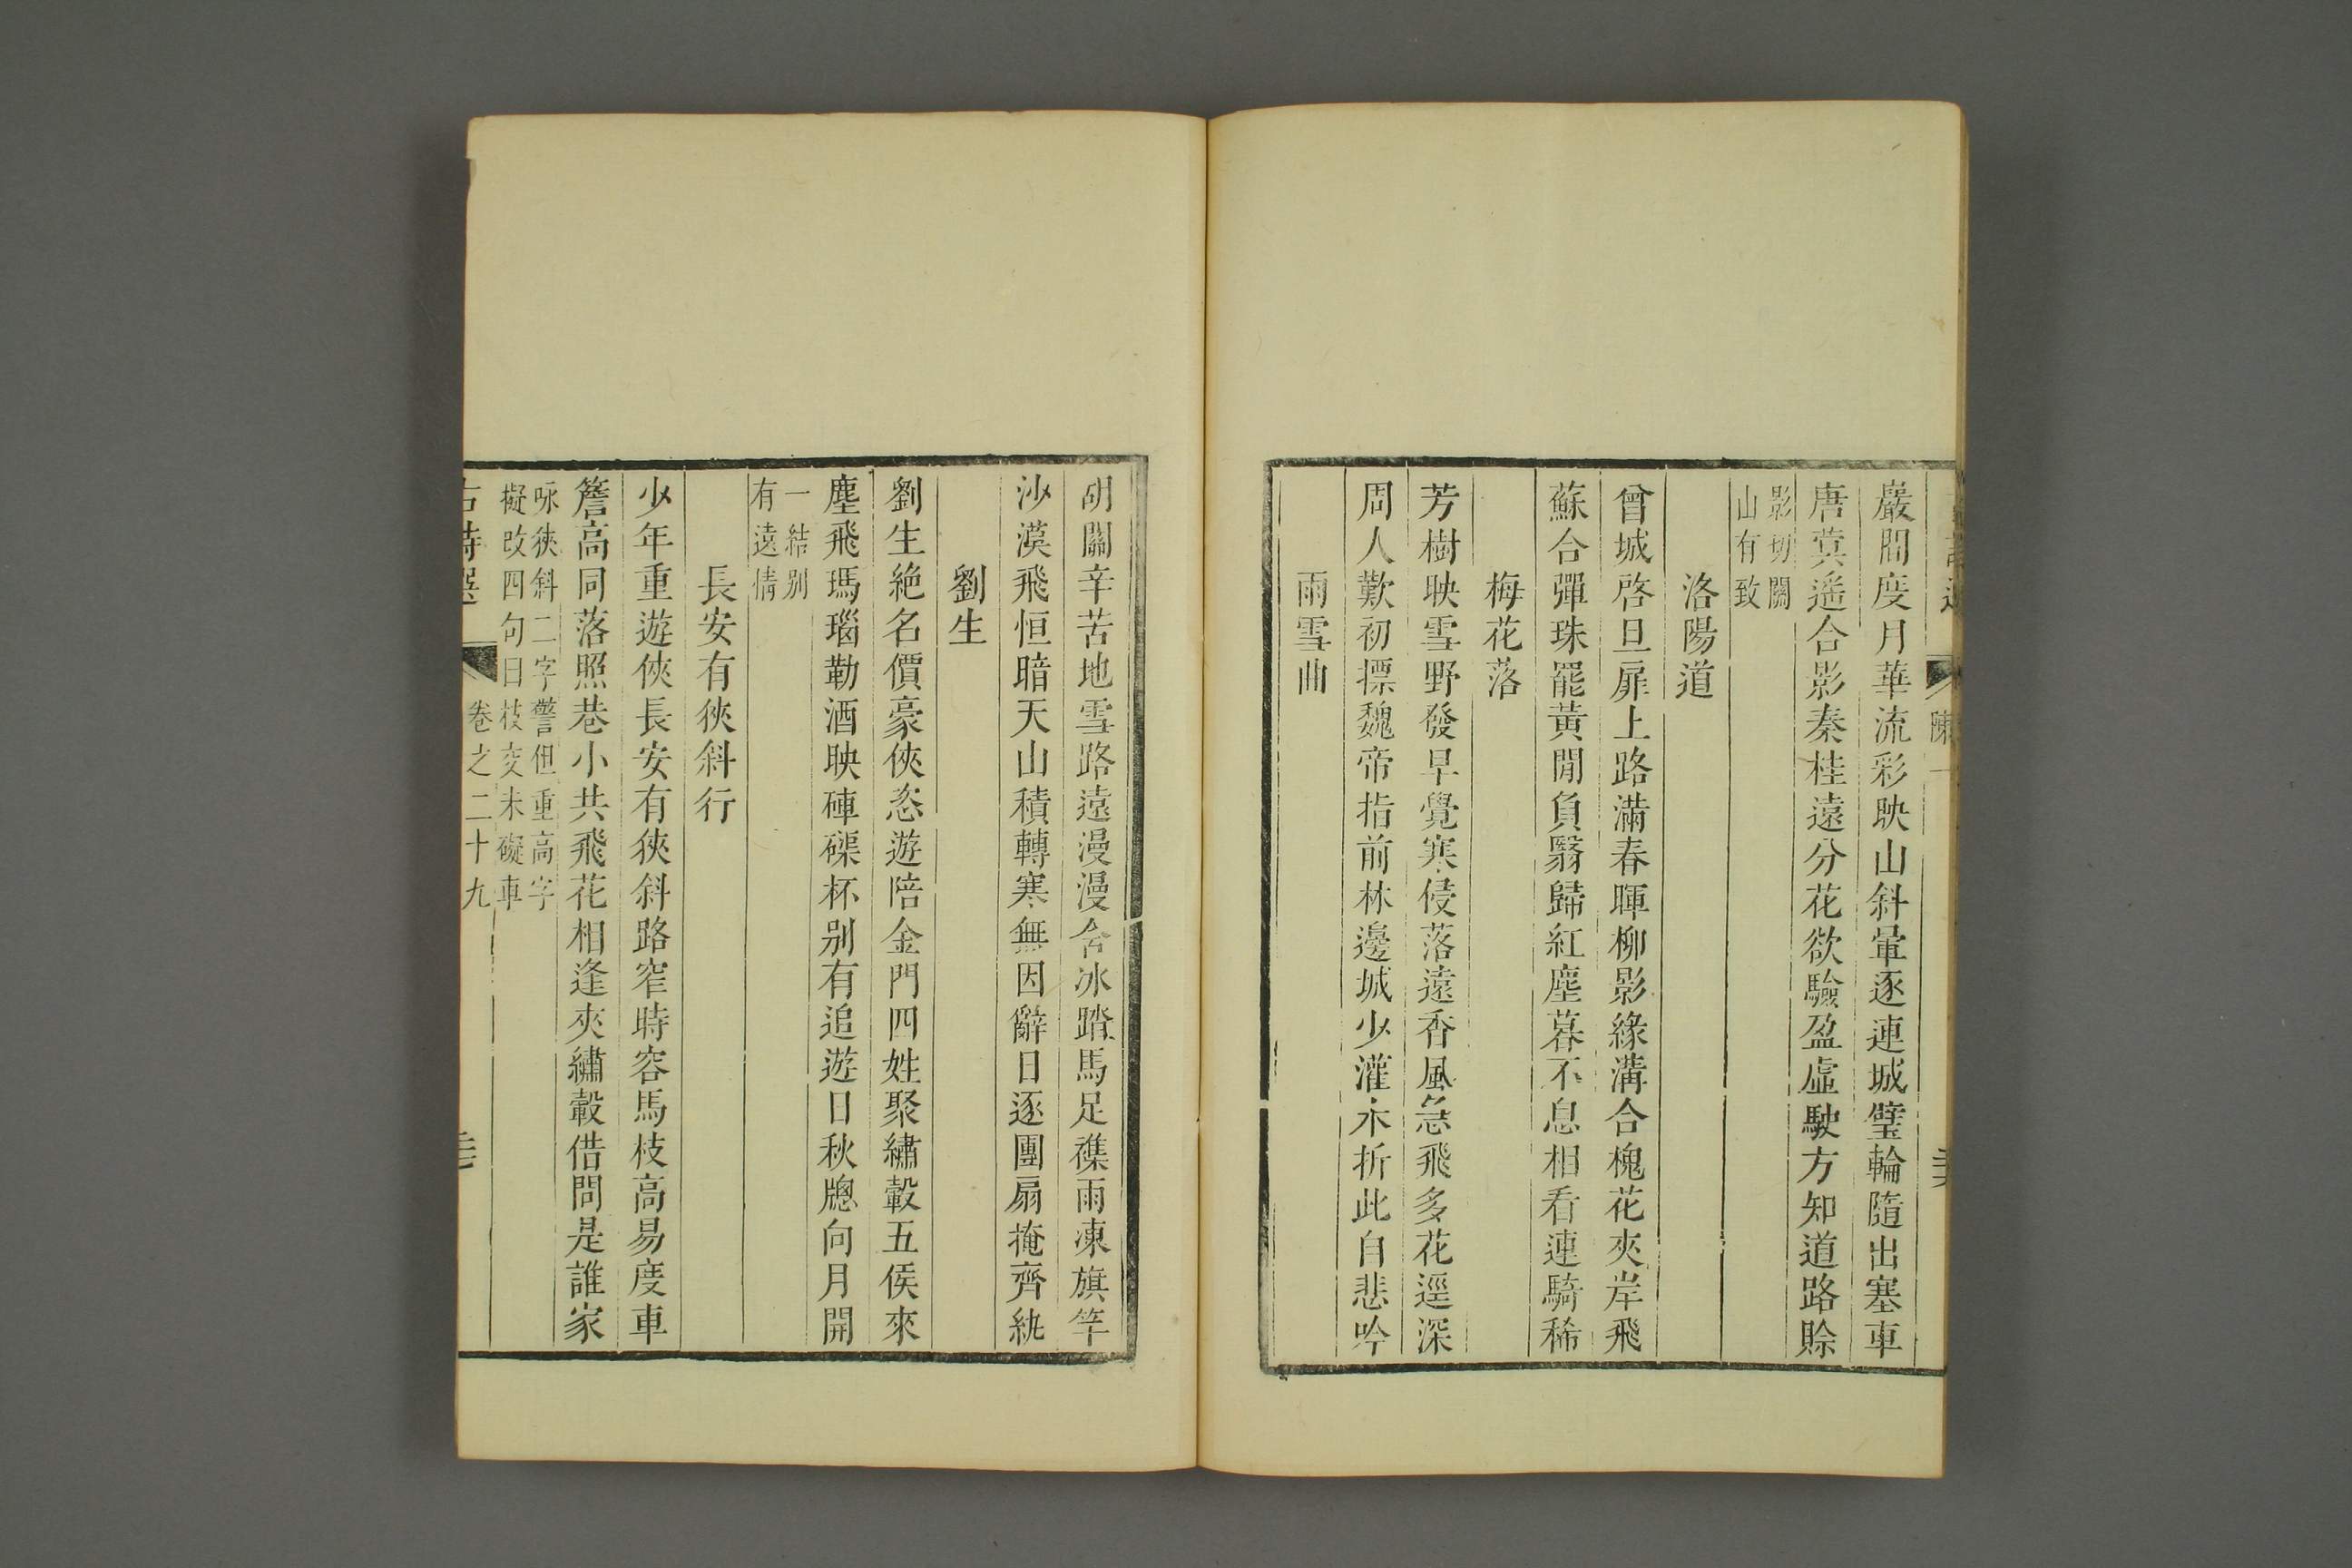 陳一
巖間度月華流彩映山斜暈逐連城璧輪隨出塞車
唐蓂遥合影秦桂遠分花欲驗盈虛駛方知道路賒
影切關
山有致
洛陽道
曾城啓旦扉上路滿春暉柳影緣溝合槐花夾岸飛
蘇合彈珠罷黃閒負翳歸紅塵暮不息相看連騎稀
梅花落
芳樹映雪野發早覺寒侵落遠香風急飛多花逕深
周人歎初摽魏帝指前林邊城少灌木折此自悲吟
雨雪曲
胡關辛苦地雪路遠漫漫含冰踏馬足襍雨凍旗竿
沙漠飛恒暗天山積轉寒無因辭日逐團扇掩齊紈
劉生
劉生絶名價豪俠恣遊陪金門四姓聚繡轂五侯來
塵飛瑪瑙勒酒映硨磲杯别有追遊日秋牕向月開
一結别
有遠情
長安有狹斜行
少年重遊俠長安有狹斜路窄時容馬枝高易度車
簷高同落照巷小共飛花相逢夾繡轂借問是誰家
咏狹斜二字警但重高字
擬改四句曰枝交未礙車
古詩選 卷之二十九